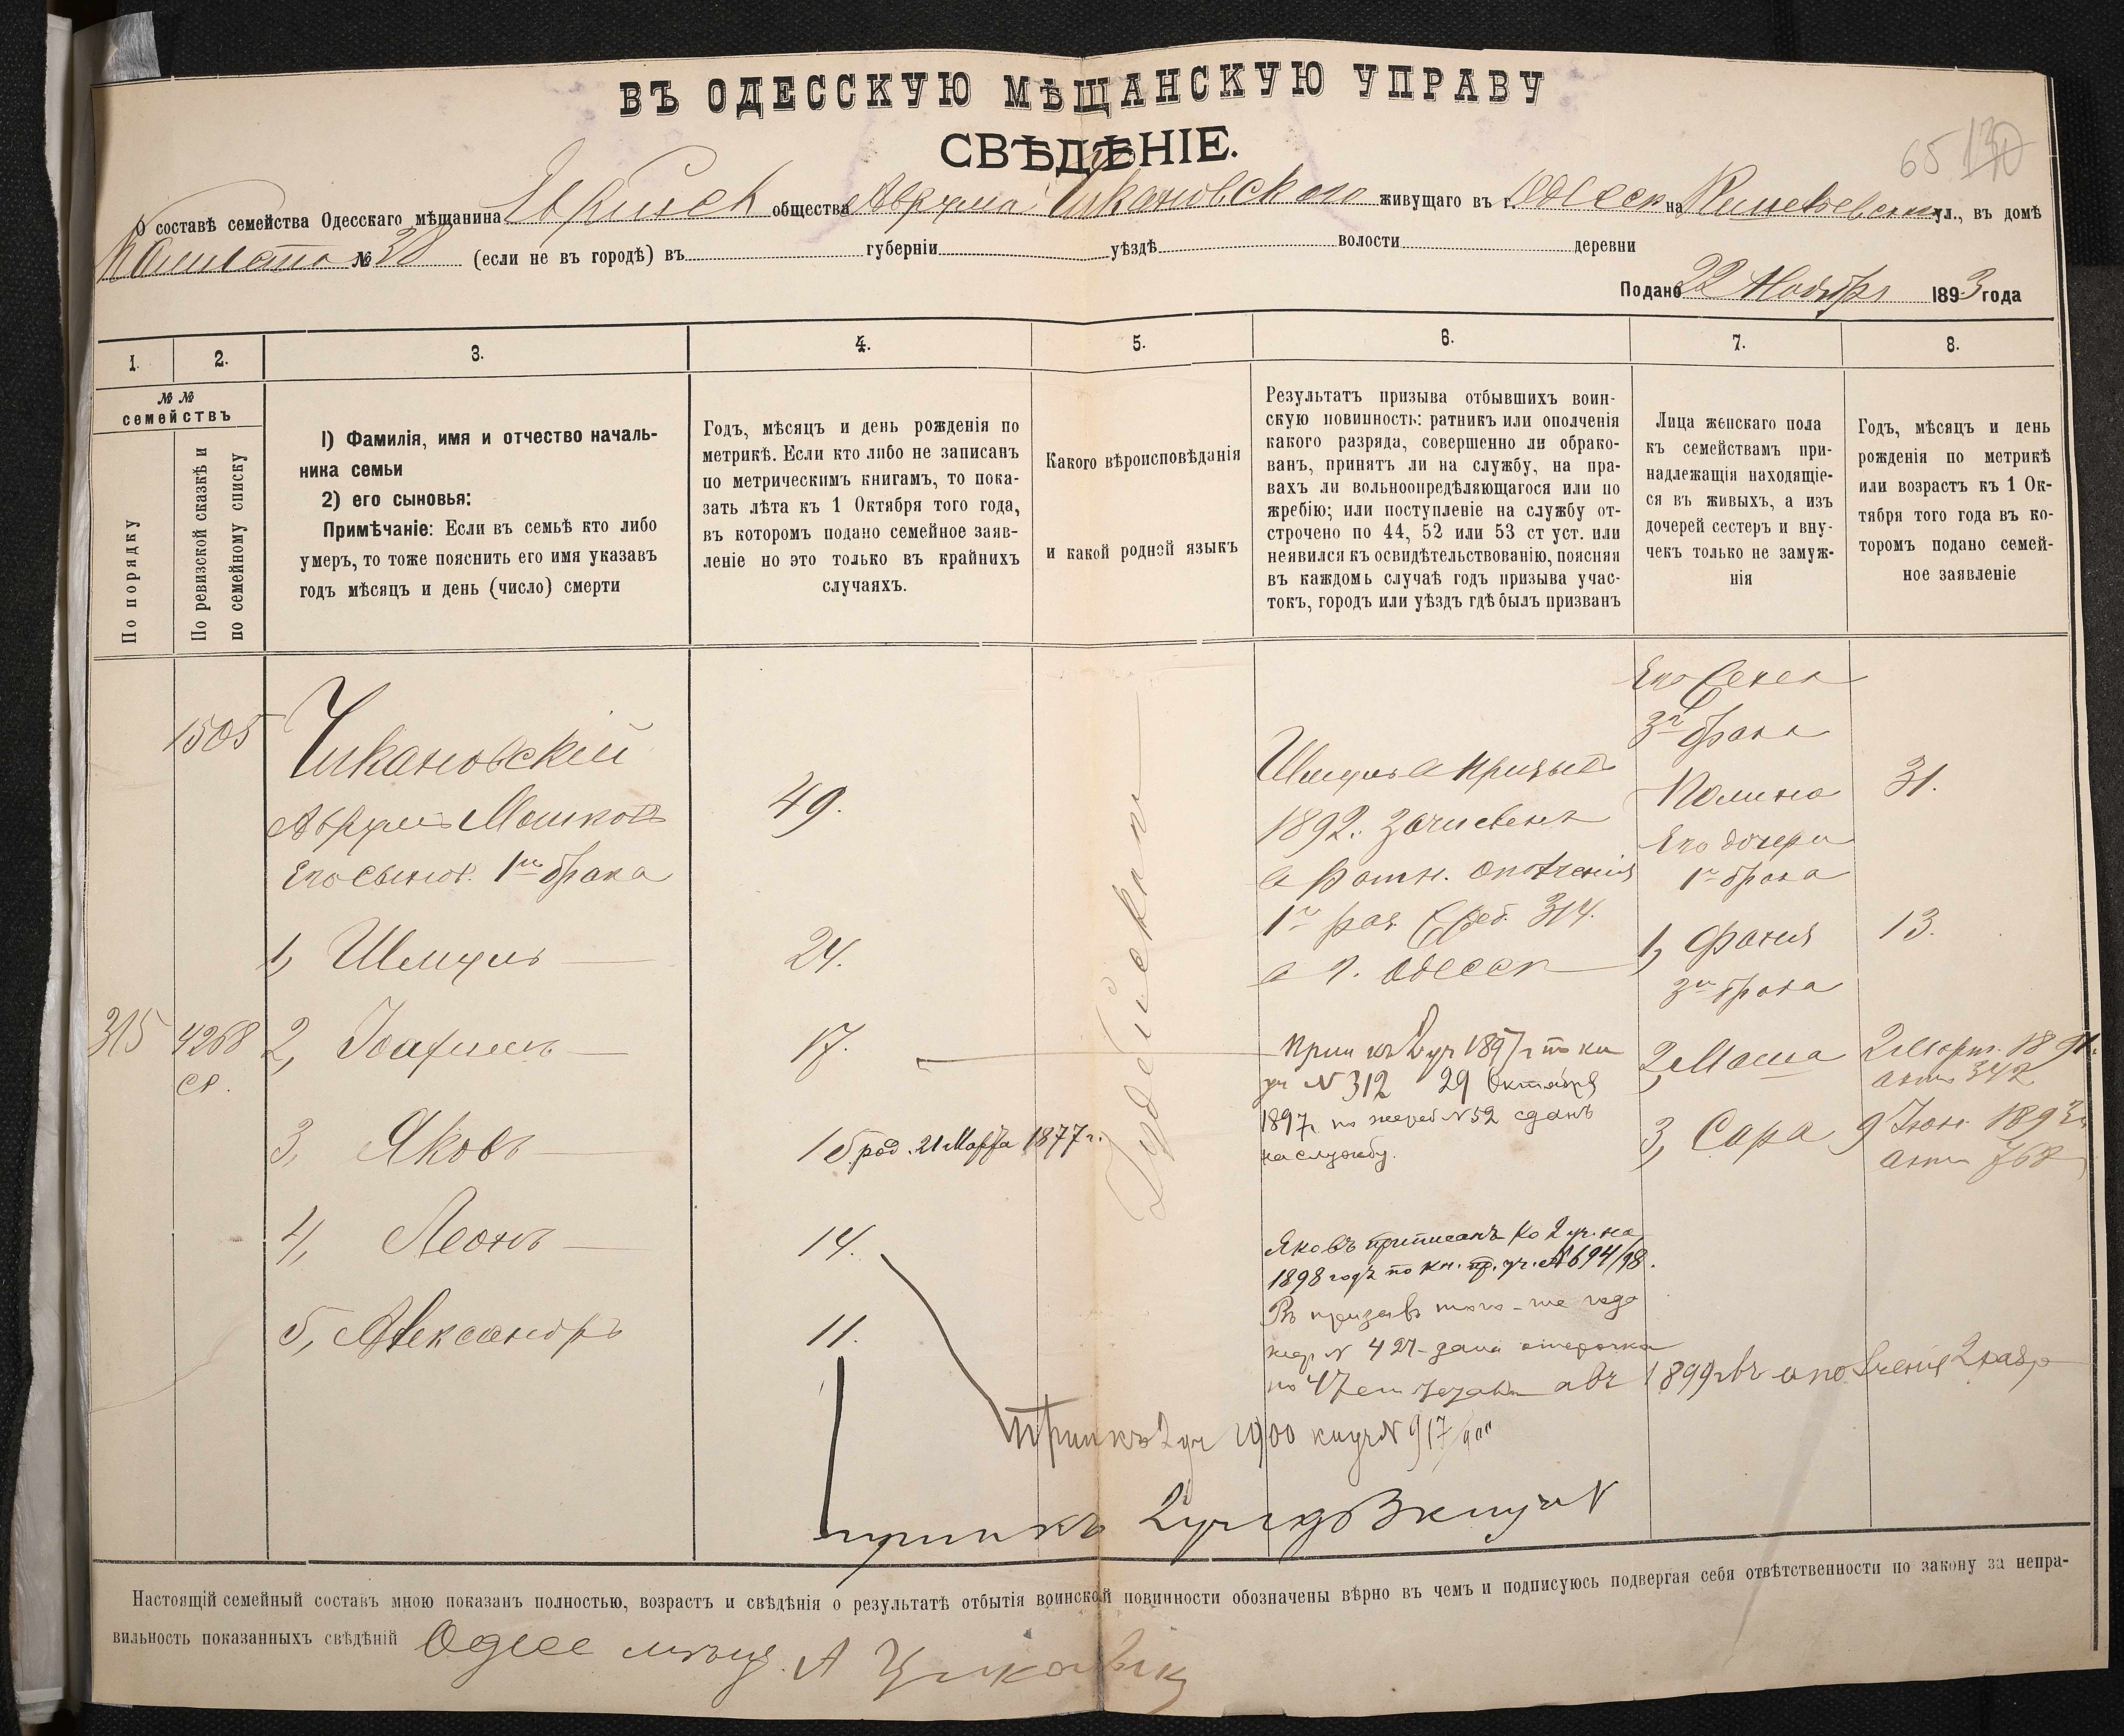 ВЪ ОДЕССКУЮ МѢЩАНСКУЮ УПРАВУ
СВѢДѢНІЕ.
65 130
О составѣ семейства Одесскаго мѣщанина Еврейск общества Аврума Чикановскаго живущаго въ г. Одессѣ на ул., въ домѣ
№ 38 (если не въ городѣ) въ губерніи уѣздѣ волости деревни
Подано 22 Ноября 1893 года
1. 2. 3. 4. 5. 6. 7. 8.
№ №
семействъ
По порядку
По ревизской сказкѣ и
по семейному списку
1) Фамилія, имя и отчество началь-
ника семьи
2) его сыновья:
Примѣчаніе: Если въ семьѣ кто либо
умеръ, то тоже пояснить его имя указавъ
годъ мѣсяцъ и день (число) смерти
Годъ, мѣсяцъ и день рожденія по
метрикѣ. Если кто либо не записанъ
по метрическимъ книгамъ, то пока-
зать лѣта къ 1 Октября того года,
въ которомъ подано семейное заяв-
леніе но это только въ крайнихъ
случаяхъ.
Какого вѣроисповѣданія
и какой родной языкъ
Результатъ призыва отбывшихъ воин-
скую повинность: ратникъ или ополченія
какого разряда, совершенно ли обрако-
ванъ, принятъ ли на службу, на пра-
вахъ ли вольноопредѣляющагося или по
жребію; или поступленіе на службу от-
строчено по 44, 52 или 53 ст уст. или
неявился къ освидѣтельствованію, поясняя
въ каждомъ случаѣ годъ призыва учас-
токъ, городъ или уѣздъ гдѣ былъ призванъ
Лица женскаго пола
къ семействамъ при-
надлежащія находящіе-
ся въ живыхъ, а изъ
дочерей сестеръ и вну-
чекъ только не замуж-
нія
Годъ, мѣсяцъ и день
рожденія по метрикѣ
или возрастъ къ 1 Ок-
тября того года въ ко-
торомъ подано семей-
ное заявленіе
1505
315
4268
ср.
Чикановскій
Аврумъ Мошковъ
49.
Его сынов. 1го брака
1, Шмуль 24.
2, Іоахимъ 17.
3, Яковъ 15 род. 21 Марта 1877 г.
4, Леонъ 14.
5, Александръ 11.
Іудейскаго
Шмуль в призывѣ
1892. зачисленъ
в ратн. ополченія
1го раз. жреб. 314.
в г. Одессѣ
Прип къ 2 уч 1897 г по кн
уч N 312 29 Октября
1897 г. по жереб N 52 сданъ
на службу.
Яковъ приписанъ ко 2 уч. на
1898 годъ по кн. пр. уч. № 694/98.
Въ призывъ того-же года
жер. N 427 дана отсрочка
по 47 ст а въ 1899 г въ ополченіе 2 разр
Прип къ 2 уч 1900 кн уч N 917/900
прип къ 2 уч
Его жена
3го брака
Полина 31.
Его дочери
1го брака
1, Фаня 13.
3го брака
2, Маша 2 Март. 1891.
актъ 342
3, Сара 9 Іюн. 1893 г.
актъ 768
Настоящій семейный составъ мною показанъ полностью, возрастъ и свѣдѣнія о результатѣ отбытія воинской повинности обозначены вѣрно въ чемъ и подписуюсь подвергая себя отвѣтственности по закону за непра-
вильность показанныхъ свѣдѣній Одесс мѣщ. А